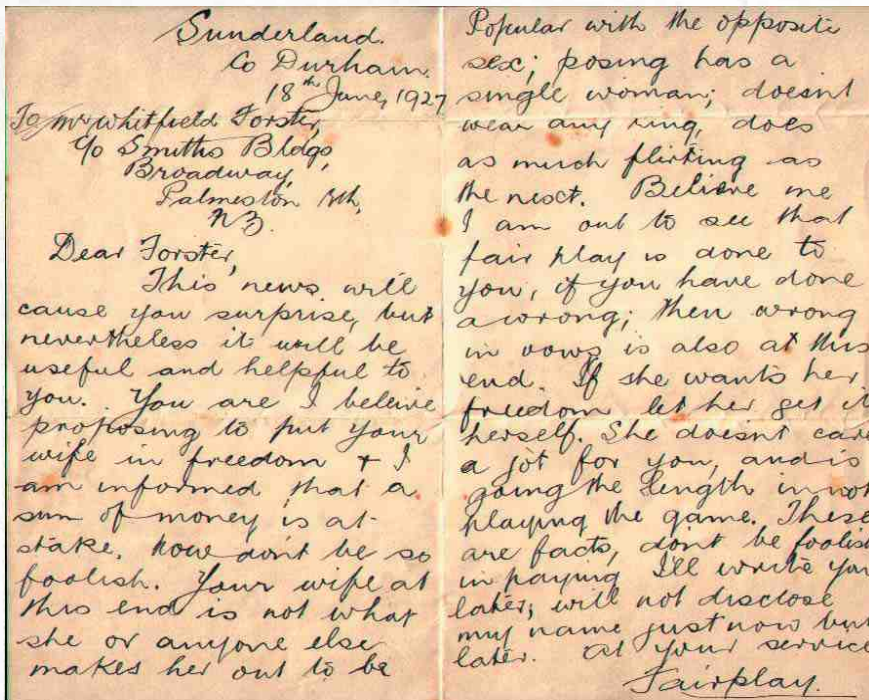 Sunderland.
Co Durham.
18th June, 1927
To Mr Whitfield Forster,
C/o Smiths Bldgs,
Broadway,
Palmeston Nth,
N.Z.
Dear Forster,
This news will
cause you surprise, but
nevertheless it will be
useful and helpful to
you. You are I beleive
proposing to put your
wife in freedom + I
am informed that a
sum of money is at
stake. Now don't be so
foolish. Your wife at
this end is not what
she or anyone else
makes her out to be
Popular with the opposite
sex; posing has a
single woman; doesnt
wear any ring, does
as much flirting as
the next. Believe me
I am out to see that
fair play is done to
you, if you have done
a wrong; then wrong
in vows is also at this
end. If she wants her
freedom let her get it
herself. She doesnt care
a jot for you, and is
going the length in not
playing the game. These
are facts, dont be foolish
in paying I'll write you
later; will not disclose
my name just now but
later. At your service
Fairplay.